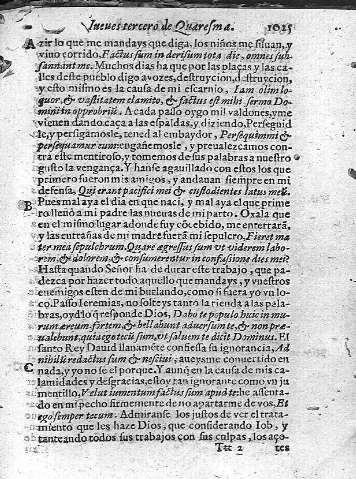 Jueues tercero de Quaresma. 1025
A zir lo que me mandays que diga, los niños me siluan, y
viuo corrido. Factus sum in derisum tota die, omnes sub-
sannant me. Muchos dias ha que por las plaças y las ca-
lles deste pueblo digo a vozes, destruycion, destruycion,
y esto mismo es la causa de mi escarnio, Iam olim lo
quor, & vastitatem clamito, & factus est mihi sermo Do
mini in opprobriũ. A cada paso oygo mil valdones, y me
vienen dando caça a las espaldas, y diziendo. Perseguid
le, y persigamosle, tened al embaydor. Persequimini &
persequamur eum: engañemosle, y preualezcamos con-
tra este mentiroso, y tomemos de sus palabras a nuestro
gusto la vengança. Y hanse aguillado con estos los que
primero fueron mis amigos, y andauan siempre en mi
defensa, Qui erant pacifici mei & custodientes latus meũ.
B Pues mal aya el dia en que naci, y mal aya el que prime
ro lleuò a mi padre las nueuas de mi parto. Oxala que
en el mismo lugar adonde fuy cõcebido, me enterrarã,
y las entrañas de mi madre fuerã mi sepulcro. Fieret ma
ter mea sepulcrum. Quare egressus sum vt viderem labo-
rem, & dolorem & consumerentur in confusione dies mei?
Hasta quando Señor ha de durar este trabajo, que pa-
dezca por hazer todo aquello que mandays, y vuestros
enemigos esten de mi burlando, como si fuera yo vn lo-
co. Passo Ieremias, no solteys tanto la rienda a las pala-
bras, oyd lo q̃ responde Dios, Dabo te populo huic in mu-
rum æreum, fortem, & bellabunt aduersum te, & non præ-
ualebunt, quia ego tecũ sum, vt saluem te dicit Dominus. El
santo Rey Dauid llanamẽte confiessa su ignorancia, Ad
nihilũ redactus sum & nesciui, aueysme conuertido en
C nada, y yo no se el porque. Y aunq̃ en la causa de mis ca-
lamidades y desgracias, estoy tan ignorante como vn ju
mentillo, Velut iumentum factus sum apud te: he assenta-
do en mi pecho firmemente de no apartarme de vos, Et
ego semper tecum. Admiranse los justos de ver el trata-
miento que les haze Dios, que considerando Iob, y
tanteando todos sus trabajos con sus culpas, los aço-
Ttt 2 tes